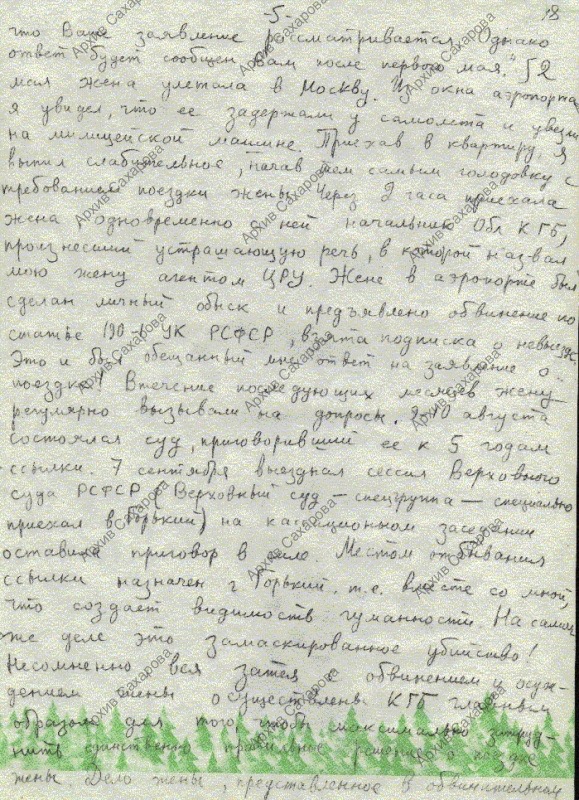 5
18
что Ваше заявление рассматривается. Однако
ответ будет сообщен Вам после первого мая." 2
мая жена улетала в Москву. Из окна аэропорта
я увидел, что ее задержали у самолета и увезли
на милицейской машине. Приехав в квартиру, я
выпил слабительное, начав тем самым голодовку с
требованием поездки жены. Через 2 часа приехала
жена, одновременно с ней начальник Обл КГБ,
произнесший устрашающую речь, в которой назвал
мою жену агентом ЦРУ. Жене в аэропорте был
сделан личный обыск и предъявлено обвинение по
статье 190-1 УК РСФСР, взята подписка о невыезде.
Это и был обещанный мне ответ на заявление о
поездке! В течение последующих месяцев жену
регулярно вызывали на допросы. 9-10 августа
состоялся суд, приговоривший ее к 5 годам
ссылки. 7 сентября выездная сессия Верховного
суда РСФСР (Верховный суд – спецгруппа – специально
приехал в Горький) на кассационном заседании
оставила приговор в силе. Местом отбывания
ссылки назначен г. Горький, т.е. вместе со мной,
что создает видимость гуманности. На самом
же деле это замаскированное убийство!
Несомненно вся затея с обвинением и осуж-
дением жены осуществлена КГБ главным
образом для того, чтобы максимально затруд-
нить единственно правильное решение о поездке
жены. Дело жены, представленное в обвинительном
Архив Сахарова